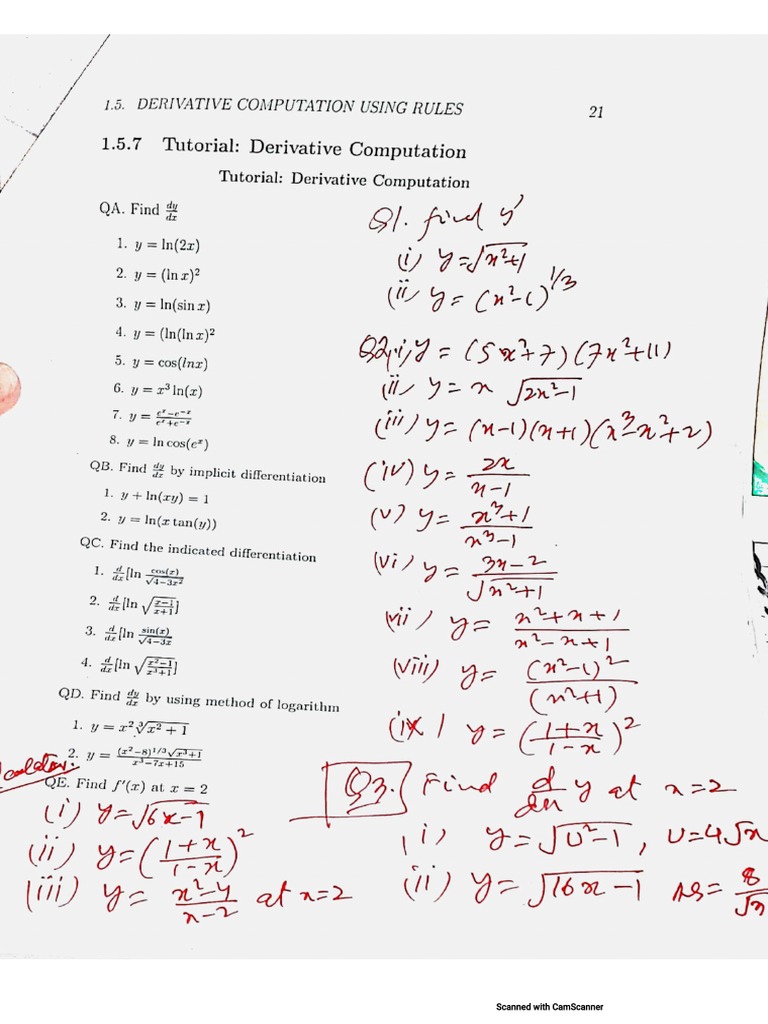 1.5. DERIVATIVE COMPUTATION USING RULES 21
1.5.7 Tutorial: Derivative Computation
Tutorial: Derivative Computation
QA. Find dy/dx
1. y = ln(2x)
2. y = (ln x)²
3. y = ln(sin x)
4. y = (ln(ln x)²
5. y = cos(lnx)
6. y = x³ ln(x)
7. y = (eˣ−e⁻ˣ)/(eˣ+e⁻ˣ)
8. y = ln cos(eˣ)
QB. Find dy/dx by implicit differentiation
1. y + ln(xy) = 1
2. y = ln(x tan(y))
QC. Find the indicated differentiation
1. d/dx[ln cos(x)/√(4−3x²)
2. d/dx[ln √((x−1)/(x+1))]
3. d/dx[ln sin(x)/√(4−3x)
4. d/dx[ln √((x²−1)/(x³+1))]
QD. Find dy/dx by using method of logarithm
1. y = x² ∛(x² + 1)
2. y = (x²−8)^(1/3) √(x³+1) / (x³−7x+15)
QE. Find f′(x) at x = 2
(i) y=√(6x−1)
(ii) y=((1+x)/(1−x))²
(iii) y= (x²−4)/(x−2) at x=2
Q1. find y′
(i) y=√(x²+1)
(ii) y=(x²−1)^(1/3)
Q2. (i) y=(5x²+7)(7x²+11)
(ii) y=x √(2x²−1)
(iii) y=(x−1)(x+1)(x³−x²+2)
(iv) y= 2x/(x−1)
(v) y= (x³+1)/(x³−1)
(vi) y= (3x−2)/√(x²+1)
(vii) y= (x²+x+1)/(x²−x+1)
(viii) y= (x²−1)²/(x²+1)
(ix) y=((1+x)/(1−x))²
Q3. Find d/dx y at x=2
(i) y=√(U²−1), U=4√x
(ii) y=√(16x−1) As= 8/√x
Scanned with CamScanner